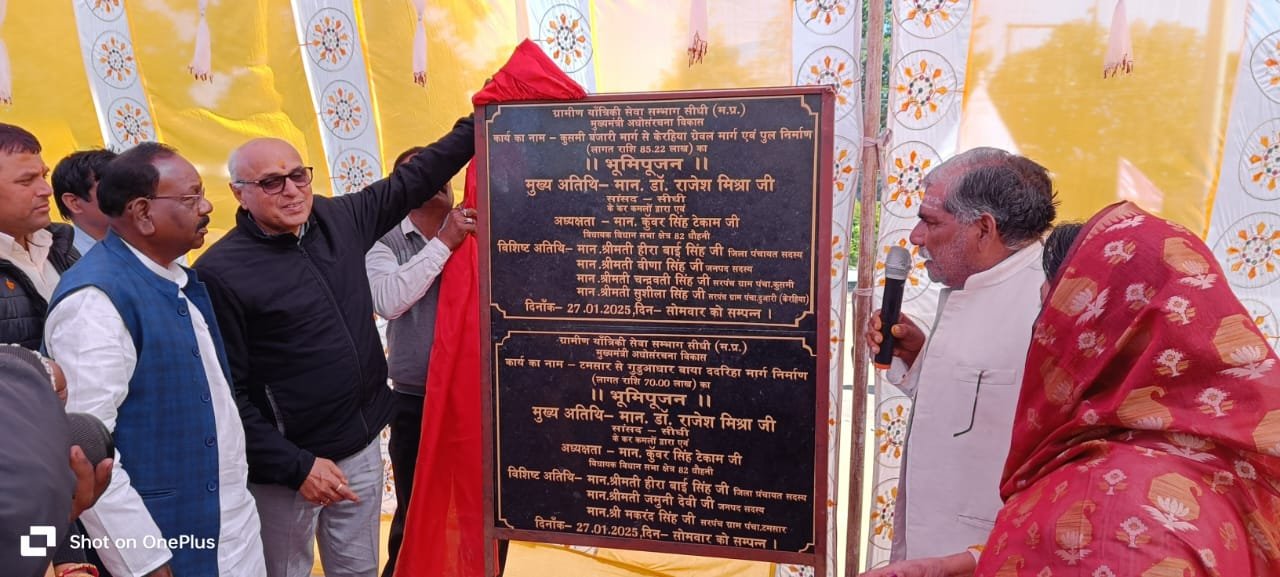 ग्रामीण यॉंत्रिकी सेवा सम्भाग सीधी (म.प्र.)
मुख्यमंत्री अधोसंरचना विकास
कार्य का नाम – कुसमी बंजारी मार्ग से केरहिया ग्रेवल मार्ग एवं पुल निर्माण
(लागत राशि 85.22 लाख) का
।। भूमिपूजन ।।
मुख्य अतिथि– मान. डॉ. राजेश मिश्रा जी
सांसद – सीधी
के कर कमलों द्वारा एवं
अध्यक्षता – मान. कुँवर सिंह टेकाम जी
विधायक विधान सभा क्षेत्र 82 धौहनी
विशिष्ट अतिथि– मान.श्रीमती हीरा बाई सिंह जी जिला पंचायत सदस्य
मान.श्रीमती वीणा सिंह जी जनपद सदस्य
मान.श्रीमती चन्द्रवती सिंह जी सरपंच ग्राम पंचा.कुसमी
मान.श्रीमती सुशीला सिंह जी सरपंच ग्राम पंचा.टुआरी (केरहिया)
दिनाँक– 27.01.2025,दिन– सोमवार को सम्पन्न ।
ग्रामीण यॉंत्रिकी सेवा सम्भाग सीधी (म.प्र.)
मुख्यमंत्री अधोसंरचना विकास
कार्य का नाम – टमसार से गुडुआधार बाया ददरिहा मार्ग निर्माण
(लागत राशि 70.00 लाख) का
।। भूमिपूजन ।।
मुख्य अतिथि– मान. डॉ. राजेश मिश्रा जी
सांसद – सीधी
के कर कमलों द्वारा एवं
अध्यक्षता – मान. कुँवर सिंह टेकाम जी
विधायक विधान सभा क्षेत्र 82 धौहनी
विशिष्ट अतिथि– मान.श्रीमती हीरा बाई सिंह जी जिला पंचायत सदस्य
मान.श्रीमती जमुनी देवी जी जनपद सदस्य
मान.श्री मकरंद सिंह जी सरपंच ग्राम पंचा.टमसार
दिनाँक– 27.01.2025,दिन– सोमवार को सम्पन्न ।
Shot on OnePlus